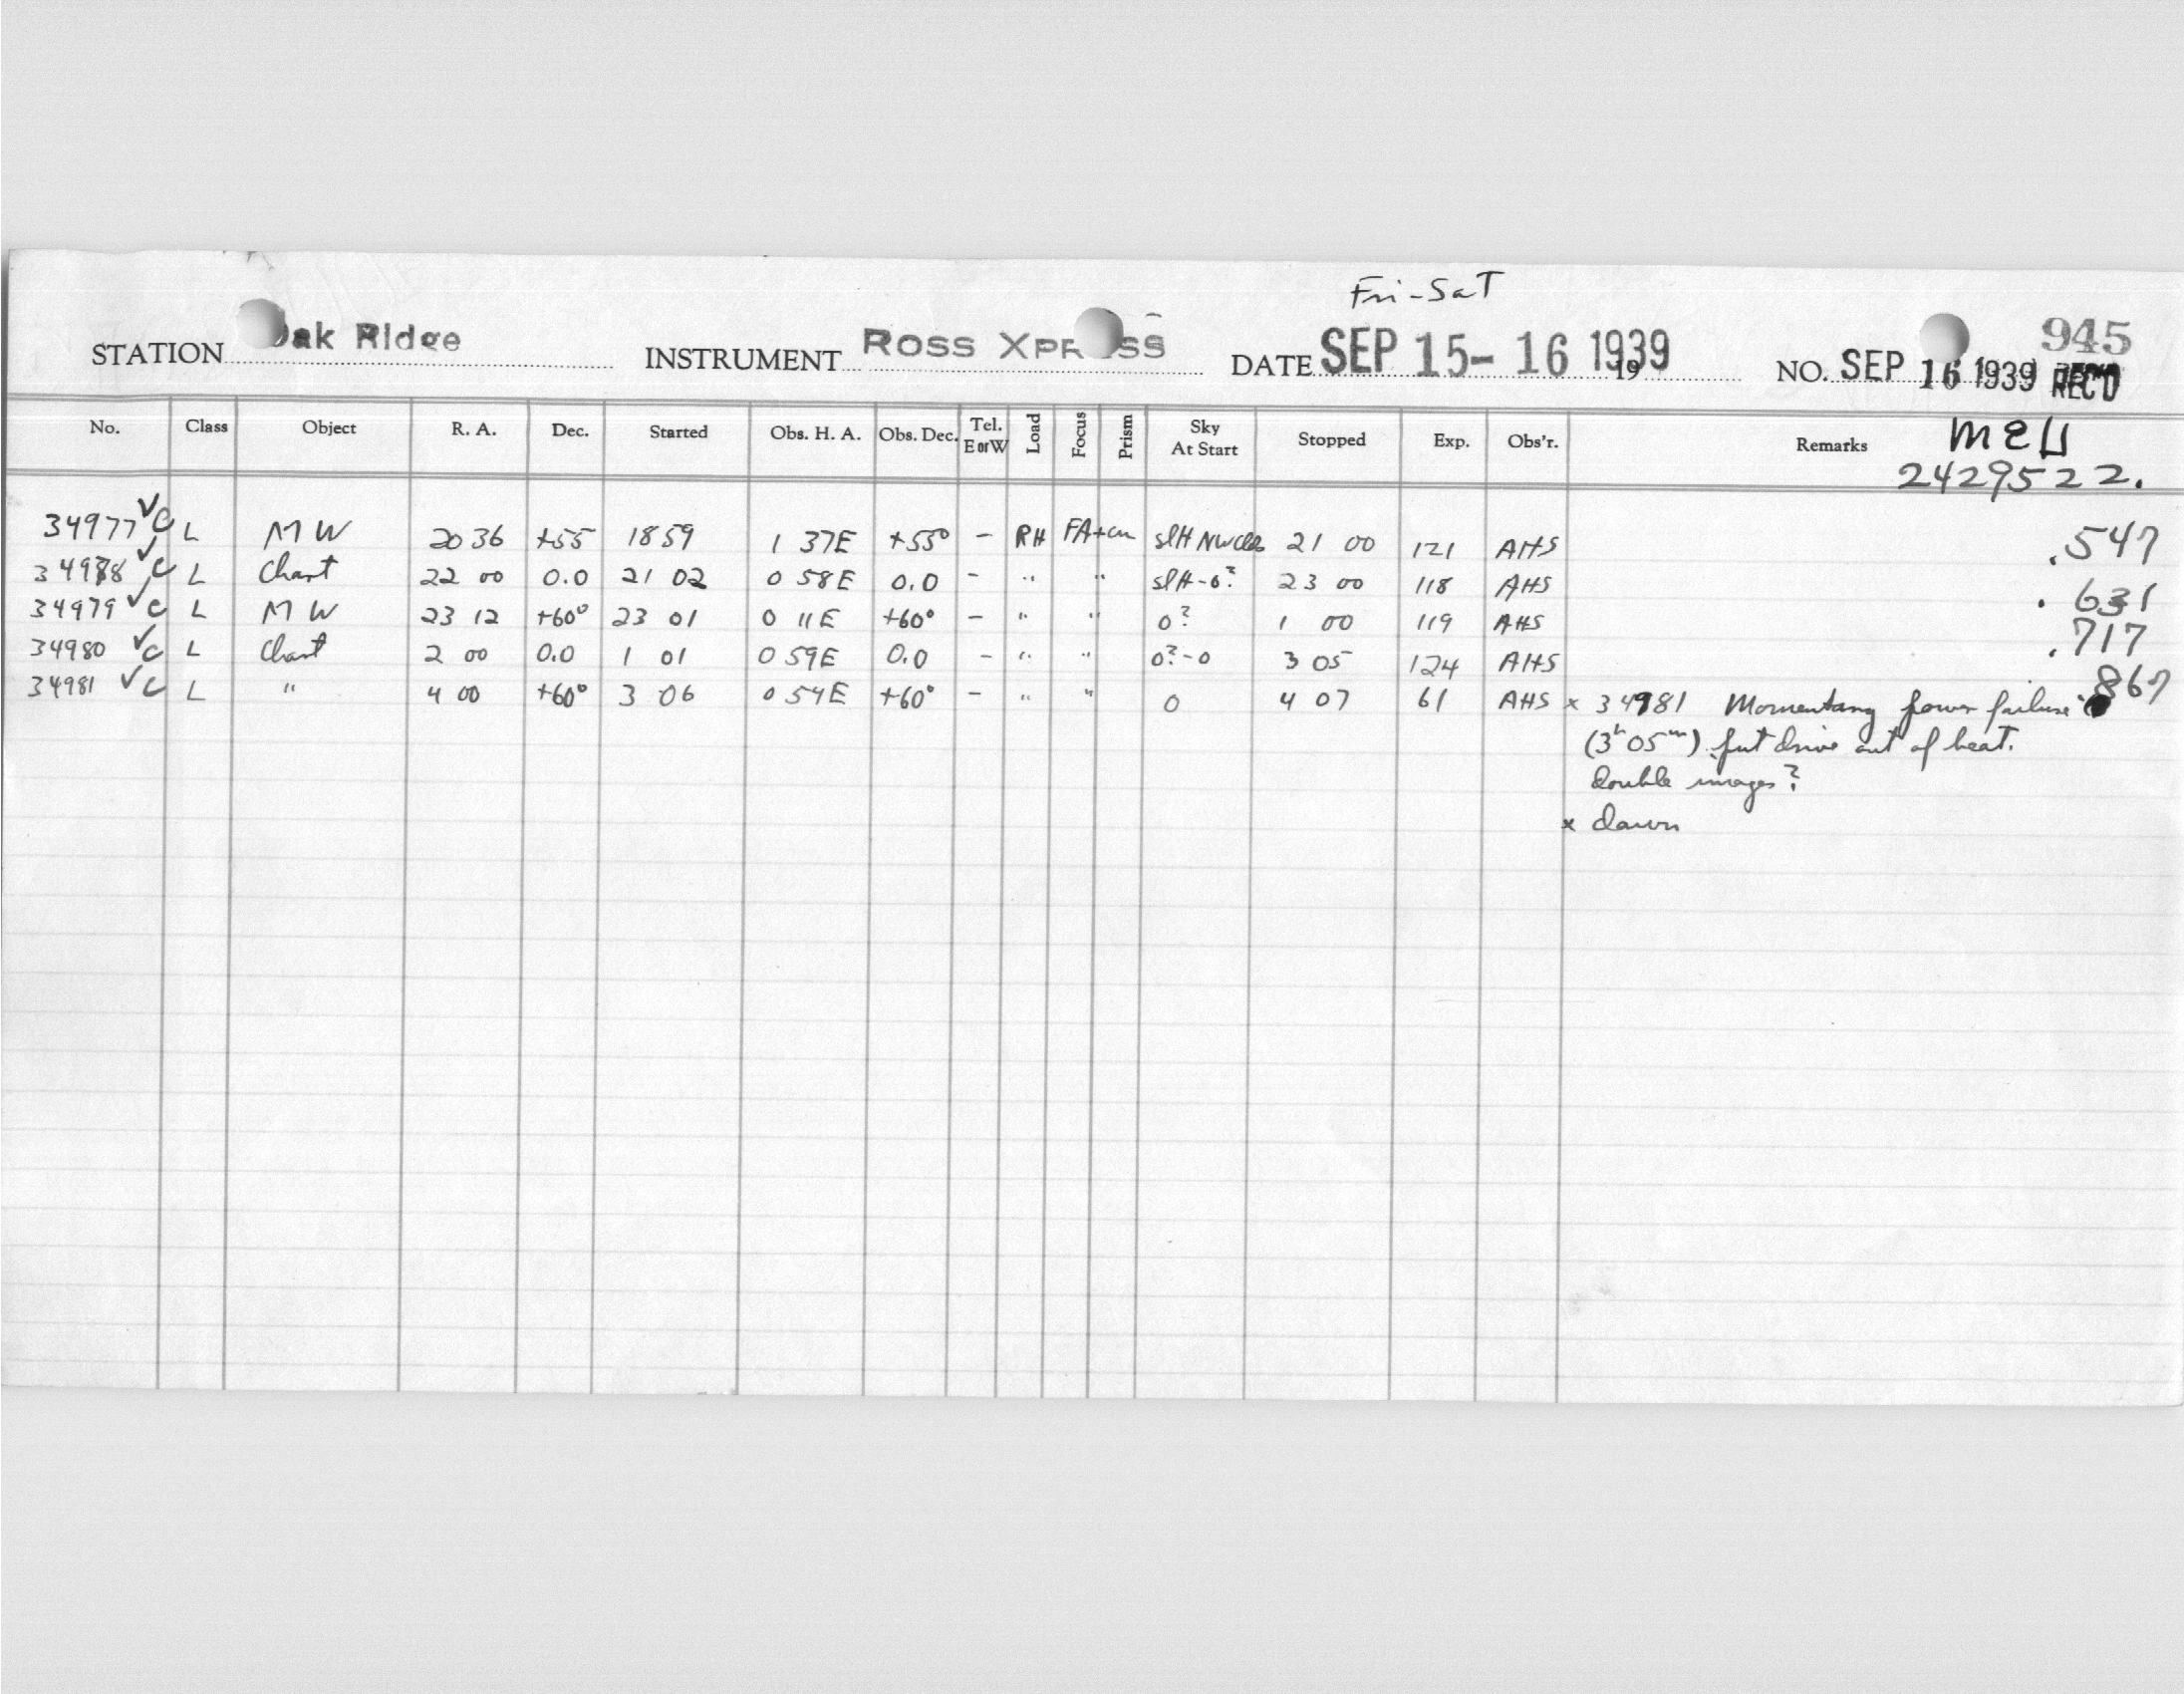 Fri-Sat
STATION Oak Ridge INSTRUMENT ROSS XPRESS DATE SEP 15-16 1939 19 NO. SEP 16 1939 REC'D 945
No. Class Object R. A. Dec. Started Obs. H. A. Obs. Dec. Tel. E or W Load Focus Prism Sky At Start Stopped Exp. Obs'r. Remarks
2429522.
34977 ✓ C L M W 20 36 +55 18 59 1 37E +55° - RH FA+cm slH NW clds 21 00 121 AHS .547
34978 ✓ C L Chart 22 00 0.0 21 02 0 58E 0.0 - " " slH-0? 23 00 118 AHS .631
34979 ✓ C L M W 23 12 +60° 23 01 0 11E +60° - " " 0? 1 00 119 AHS .717
34980 ✓ C L Chart 2 00 0.0 1 01 0 59E 0.0 - " " 0?-0 3 05 124 AHS
34981 ✓ C L " 4 00 +60° 3 06 0 54E +60° - " " 0 4 07 61 AHS x 34981 Momentary power failure .867
(3h 05m) put drive out of beat.
double images?
x dawn